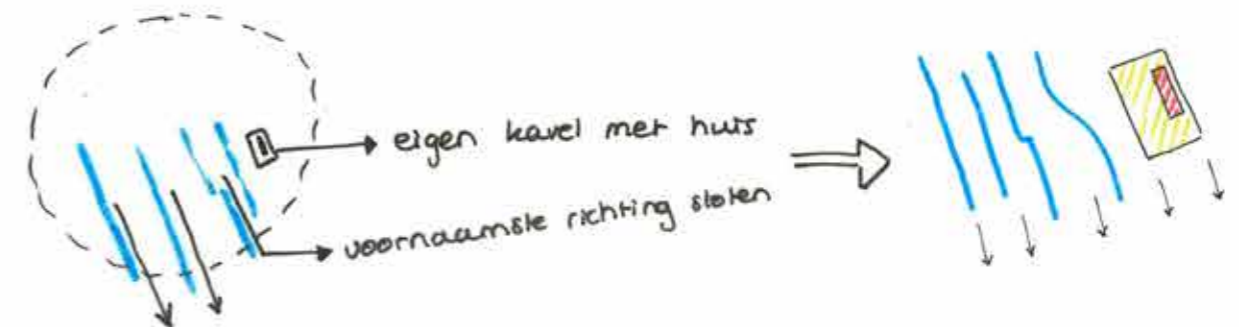 eigen kavel met huis
voornaamste richting sloten